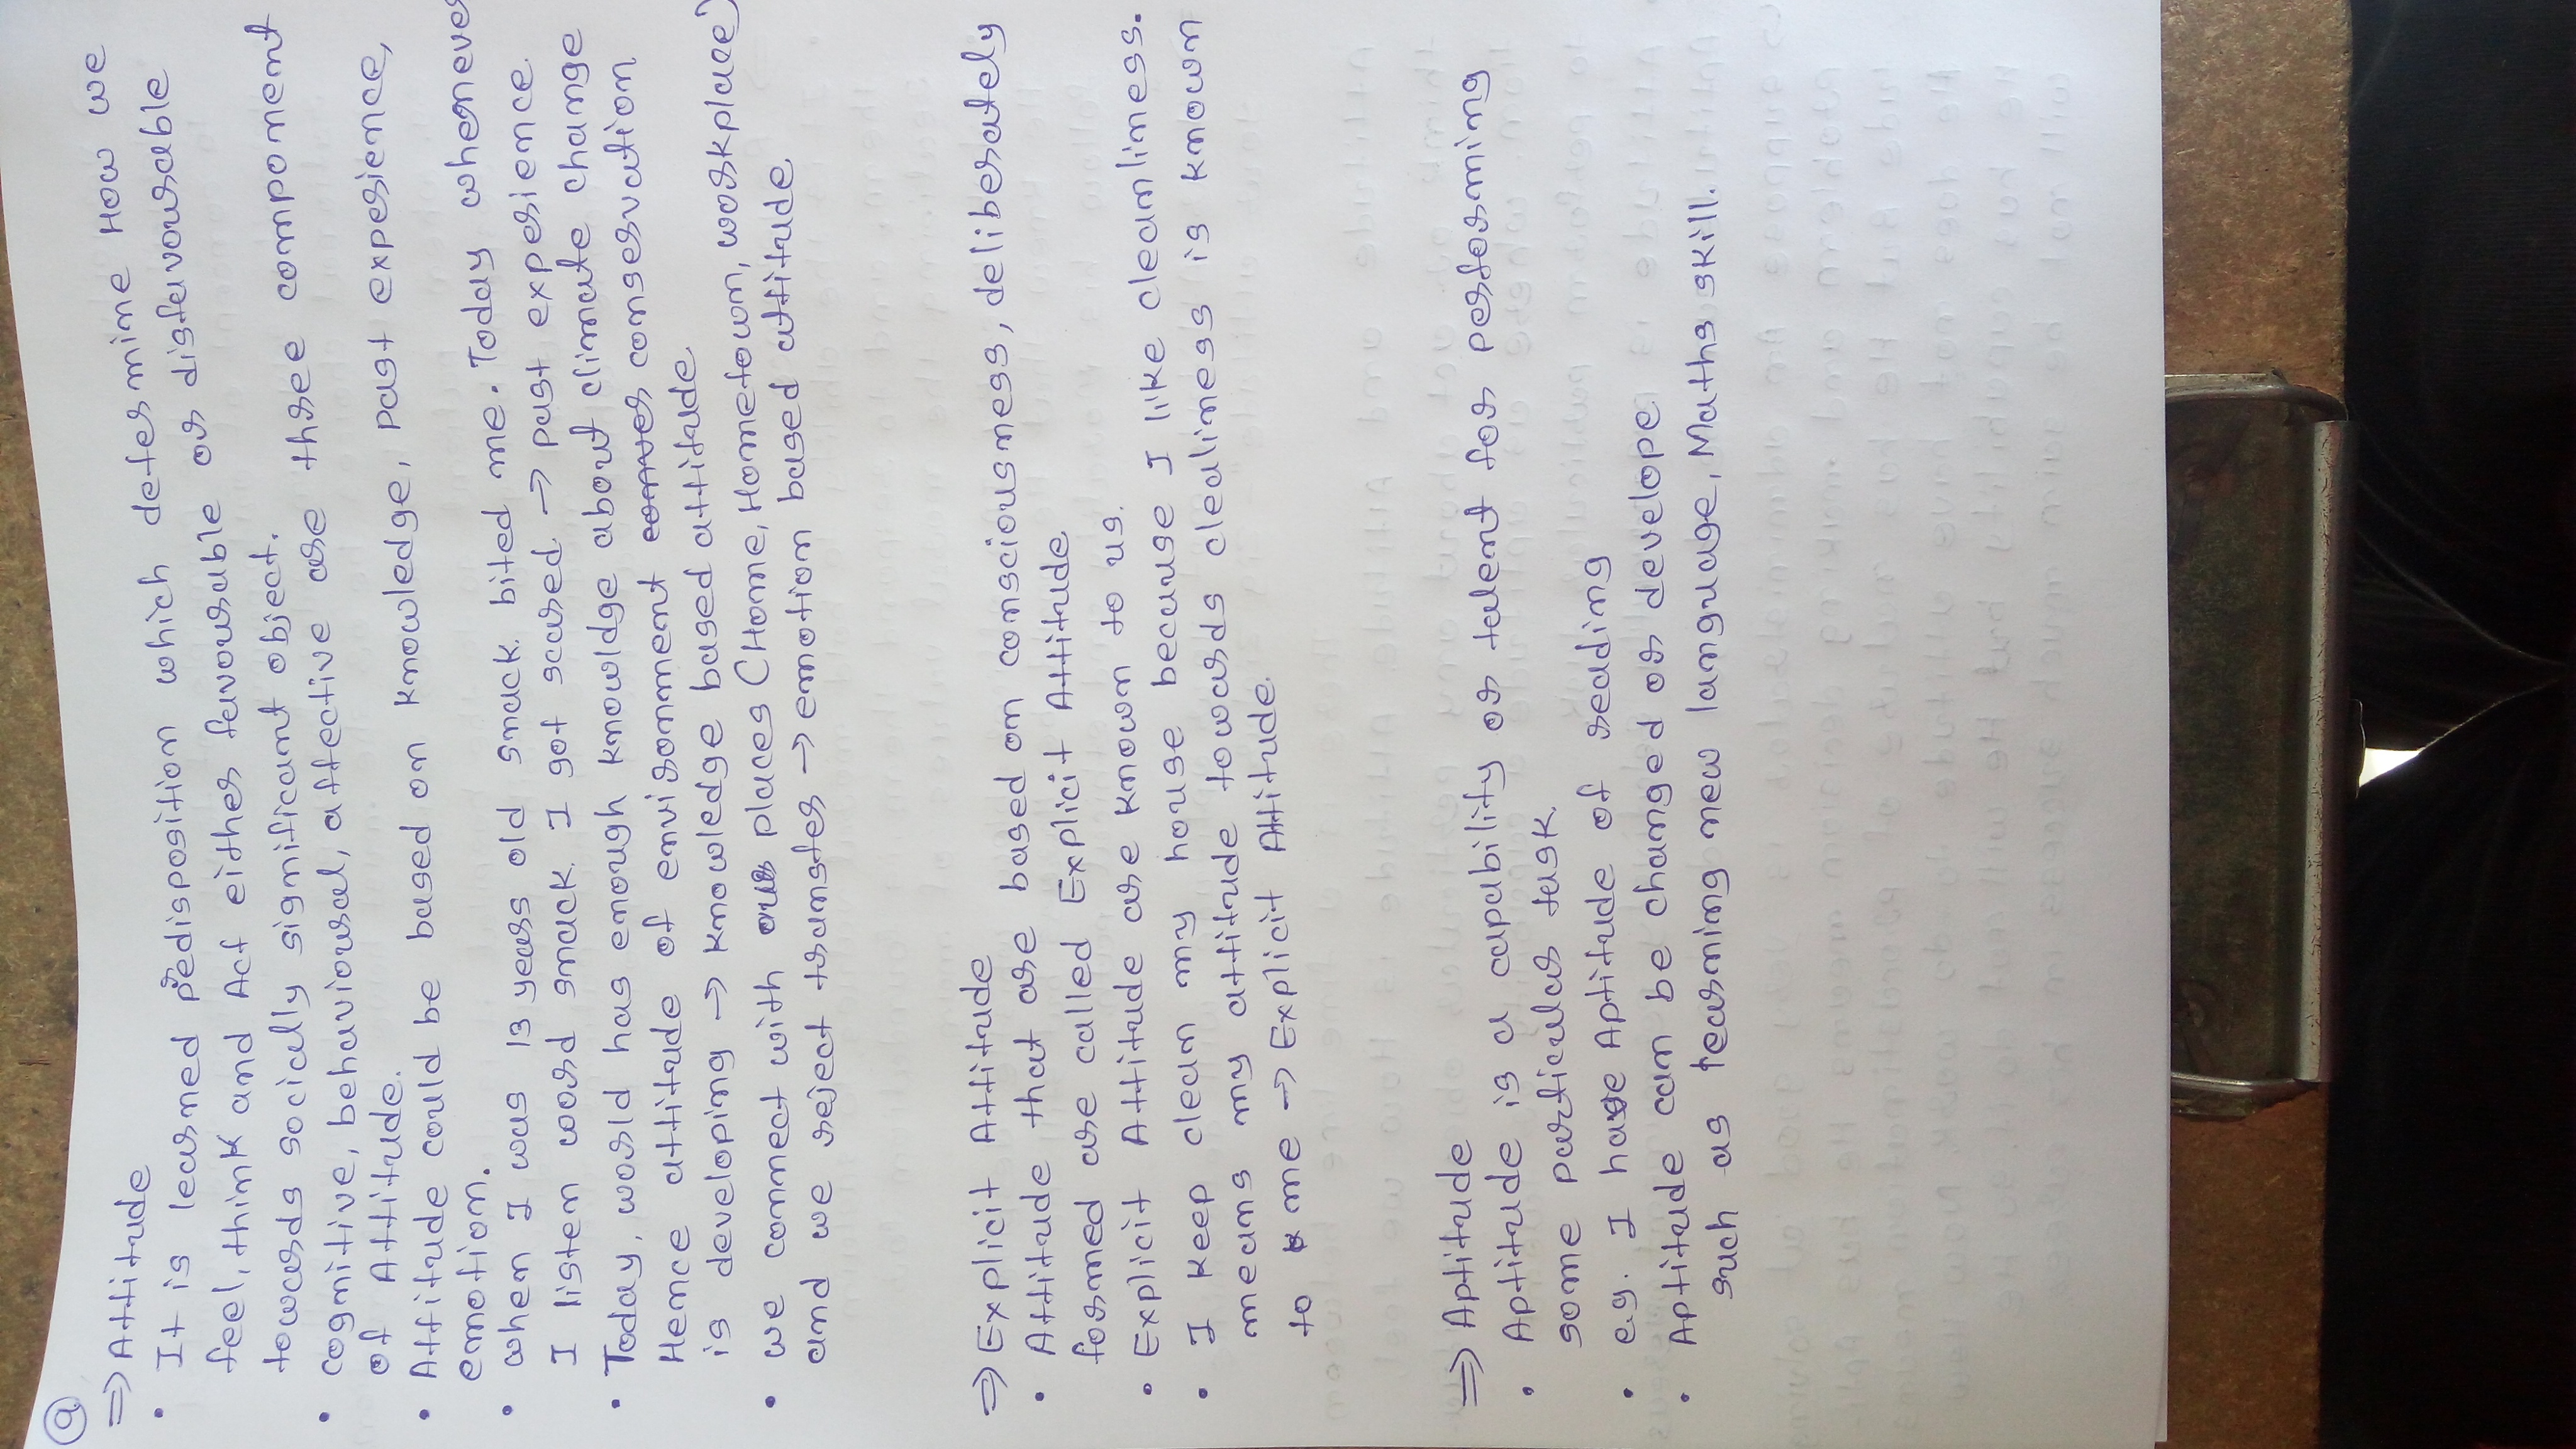 (a)
⇒ Attitude
• It is learned predisposition which determine How we
feel, think and Act either favourable or disfavourable
towards socially significant object.
• cognitive, behavioural, affective are three component
of Attitude.
• Attitude could be based on knowledge, past experience,
emotion.
• when I was 13 years old snack bited me. Today whenever
I listen word snack I got scared → past experience
• Today, world has enough knowldge about climate change
Hence attitude of environment conservation
is developing → knowledge based attitude
• we connect with our places (Home, Hometown, workplace)
and we reject transfer → emotion based attitude
⇒ Explicit Attitude
• Attitude that are based on consciousness, deliberately
formed are called Explicit Attitude
• Explicit Attitude are known to us.
• I keep clean my house because I like cleanliness.
means my attitude towards clealiness is known
to me → Explicit Attitude
⇒ Aptitude
• Aptitude is a capability or talent for performing
some particular task.
• e.g. I have Aptitude of reading
• Aptitude can be changed or develope
such as learning new language, Maths skill.